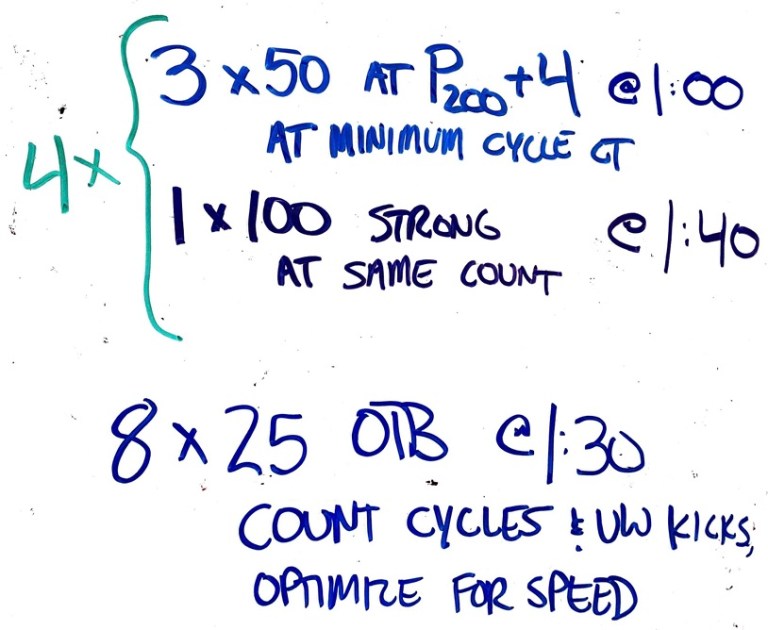 4x
3 x 50 AT P200+4 @ 1:00
AT MINIMUM CYCLE CT
1 x 100 STRONG @ 1:40
AT SAME COUNT
8 x 25 OTB @ 1:30
COUNT CYCLES & UW KICKS,
OPTIMIZE FOR SPEED